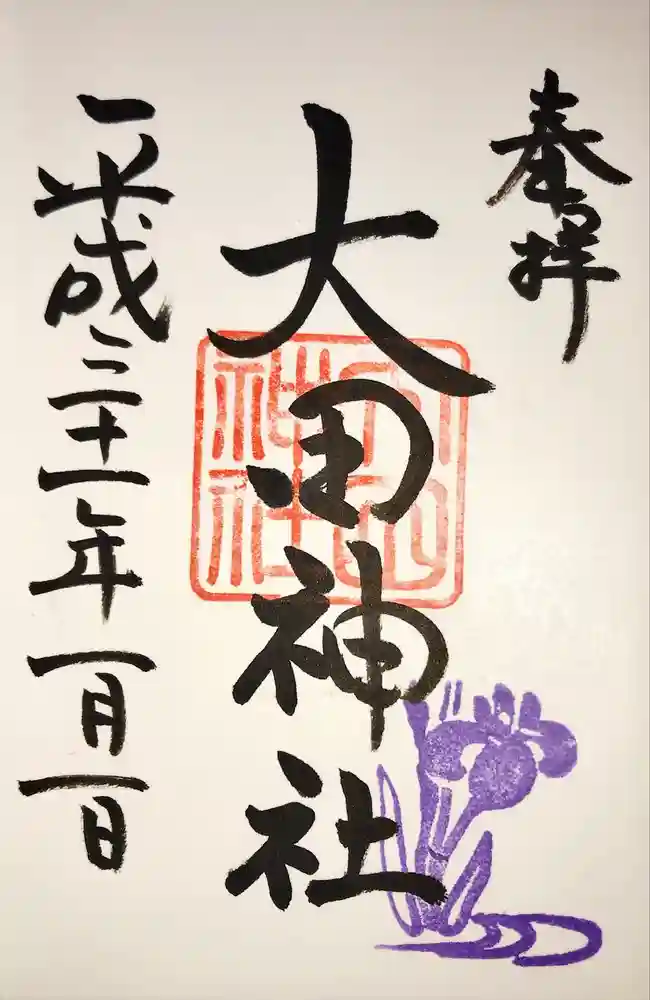 奉拝
大田神社
平成三十一年一月一日